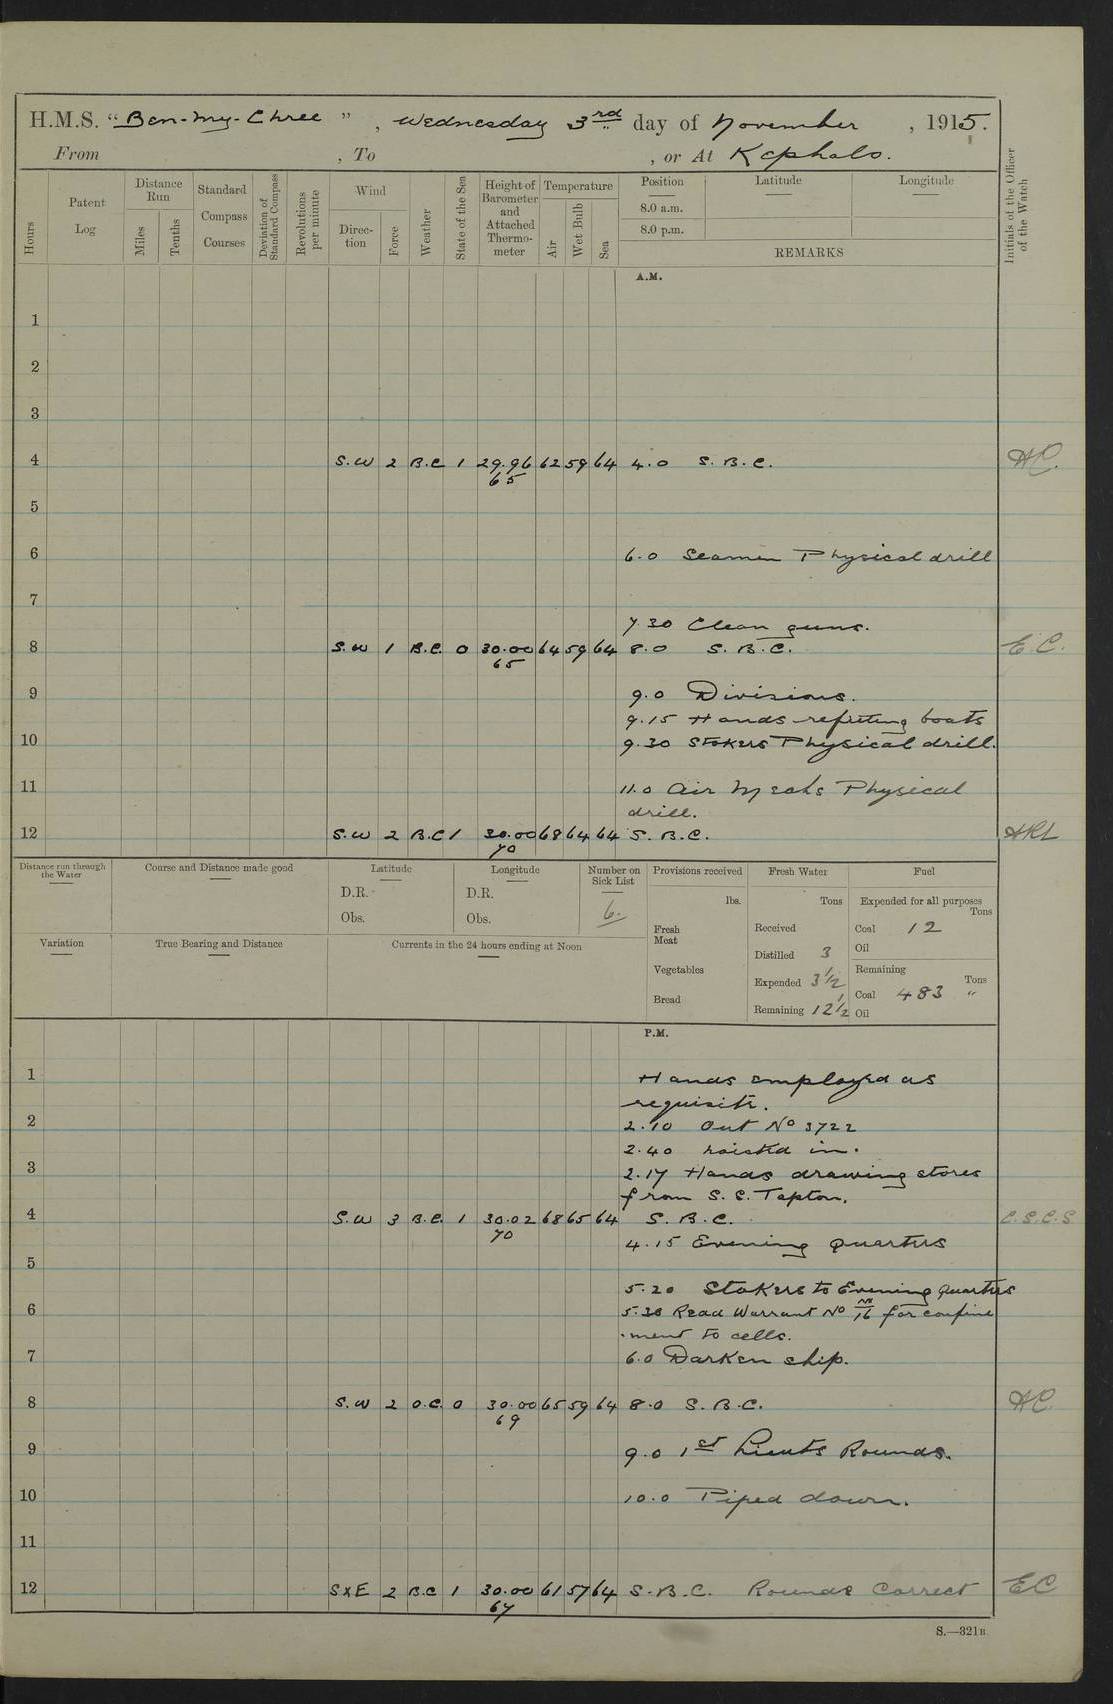 H.M.S. “Ben-my-Chree”, Wednesday 3rd day of November, 1915.
From , To , or At Kephalo.
Hours
Patent Log
Distance Run
Miles
Tenths
Standard Compass Courses
Deviation of Standard Compass
Revolutions per minute
Wind
Direction
Force
Weather
State of the Sea
Height of Barometer and Attached Thermometer
Temperature
Air
Wet Bulb
Sea
Position
8.0 a.m.
8.0 p.m.
Latitude
Longitude
REMARKS
Initials of the Officer of the Watch
A.M.
1
2
3
4 S.W 2 B.C 1 29.96 62 59 64 4.0 S.B.C. HC.
65
5
6 6.0 Seamen Physical drill
7
7.30 Clean guns.
8 S.W 1 B.C. 0 30.00 64 59 64 8.0 S.B.C. E.C.
65
9 9.0 Divisions.
9.15 Hands refitting boats
10 9.30 Stokers Physical drill.
11 11.0 Air Mechs Physical
drill.
12 S.W 2 B.C 1 30.00 68 64 64 S.B.C. HRL
70
Distance run through the Water
Course and Distance made good
Latitude
D.R.
Obs.
Longitude
D.R.
Obs.
Number on Sick List
6.
Provisions received
lbs.
Fresh Meat
Vegetables
Bread
Fresh Water
Tons
Received
Distilled 3
Expended 3 1/2
Remaining 12 1/2
Fuel
Expended for all purposes
Tons
Coal 12
Oil
Remaining
Tons
Coal 483 "
Oil
Variation
True Bearing and Distance
Currents in the 24 hours ending at Noon
P.M.
1 Hands employed as
requisite.
2 2.10 Out No 3722
2.40 hoisted in.
3 2.17 Hands drawing stores
from S.S. Tapton.
4 S.W 3 B.C. 1 30.02 68 65 64 S.B.C. C.S.C.S
70
4.15 Evening Quarters
5
5.20 Stokers to Evening Quarters
6 5.30 Read Warrant No 16 for confine
-ment to cells.
7 6.0 Darken ship.
8 S.W 2 O.C. 0 30.00 65 59 64 8.0 S.B.C. HC.
69
9 9.0 1st Lieuts Rounds.
10 10.0 Piped down.
11
12 SxE 2 B.C 1 30.00 61 57 64 S.B.C. Rounds Correct EC
67
S.—321B